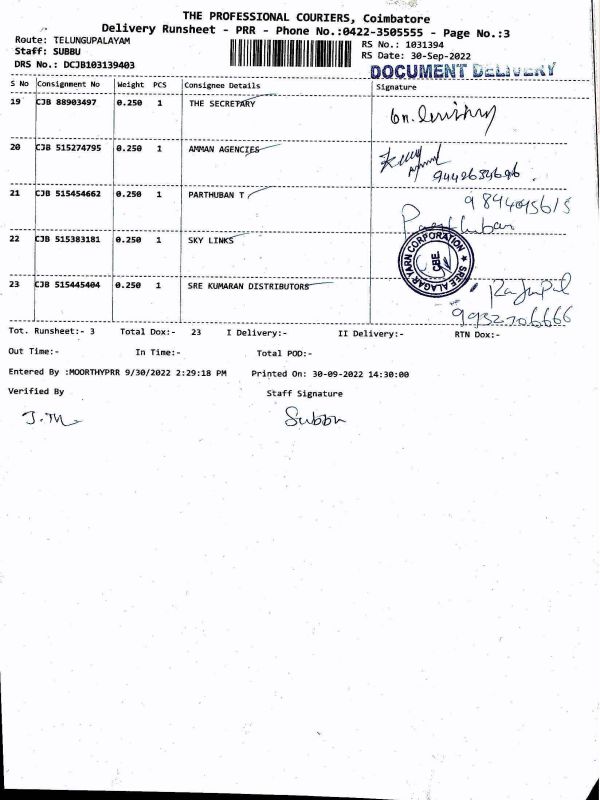 THE PROFESSIONAL COURIERS, Coimbatore
Delivery Runsheet - PRR - Phone No.:0422-3505555 - Page No.:3
Route: TELUNGUPALAYAM
Staff: SUBBU
DRS No.: DCJB103139403
RS No.: 1031394
RS Date: 30-Sep-2022
DOCUMENT DELIVERY
S No Consignment No Weight PCS Consignee Details Signature
19 CJB 88903497 0.250 1 THE SECRETARY
20 CJB 515274795 0.250 1 AMMAN AGENCIES
21 CJB 515454662 0.250 1 PARTHUBAN T
9894095615
Parthuban
22 CJB 515383181 0.250 1 SKY LINKS
SREE ALAGAR YARN CORPORATION
CBE.
23 CJB 515445404 0.250 1 SRE KUMARAN DISTRIBUTORS
9952706666
Tot. Runsheet:- 3 Total Dox:- 23 I Delivery:- II Delivery:- RTN Dox:-
Out Time:- In Time:- Total POD:-
Entered By :MOORTHYPRR 9/30/2022 2:29:18 PM Printed On: 30-09-2022 14:30:00
Verified By Staff Signature
Subbu